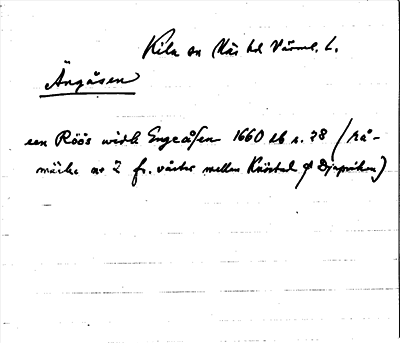 Kila sn Näs hd Värml. l.
Ängåsen
een Röös widh Engeåsen 1660 lb s. 78 (rå-
märke nr 2 fr. väster mellan Knöstad o Djupviken)